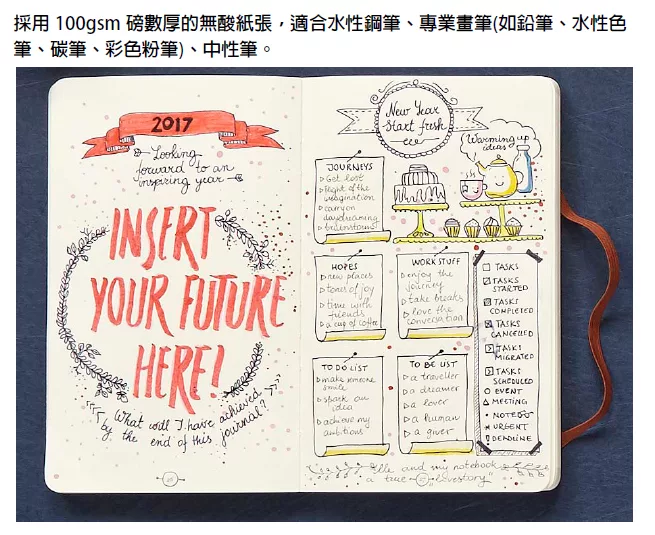 採用 100gsm 磅數厚的無酸紙張，適合水性鋼筆、專業畫筆(如鉛筆、水性色
筆、碳筆、彩色粉筆)、中性筆。
2017
Looking
forward to an
inspiring year
INSERT
YOUR FUTURE
HERE!
What will I have achieved
by the end of this journal?
New Year
Start fresh
Warming up
ideas
JOURNEYS
Get lost
flight of the
imagination
carry on
daydreaming
brainstorm
HOPES
new places
tones of joy
time with
friends
a cup of coffee
WORK STUFF
enjoy the
journey
take breaks
love the
conversation
TO DO LIST
make someone
smile
spark an
idea
achieve my
ambitions
TO BE LIST
a traveller
a dreamer
a lover
a human
a giver
TASKS
TASKS
STARTED
TASKS
COMPLETED
TASKS
CANCELLED
TASKS
MIGRATED
TASKS
SCHEDULED
EVENT
MEETING
NOTE
URGENT
DEADLINE
me and my notebook
a true lovestory"